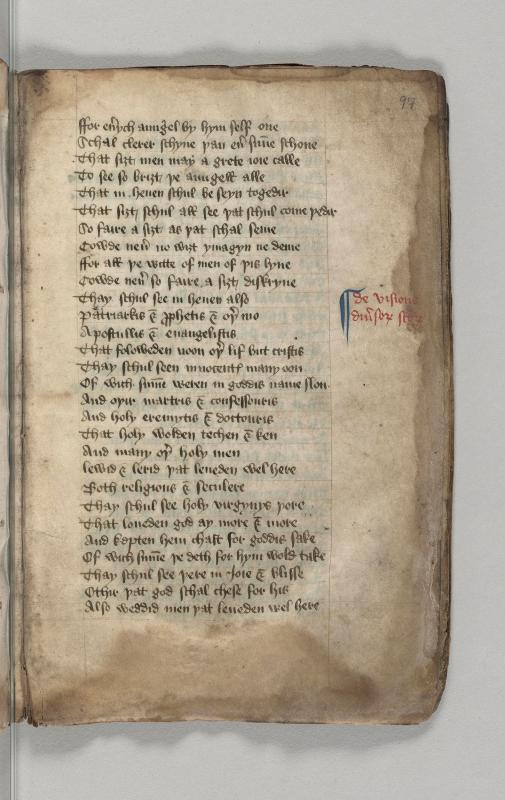 97
ffor eu̅ych aungel by hym self one
Schal clerer schyne þan eu̅ sūne schone
That siȝt men may a grete ioie calle
To see so briȝt þe aungell alle
That in heuen schul be seyn togedir
That siȝt schul all see þat schul come þedir
So faire a siȝt as þat schal seme
Cowde neu̅ no wiȝt ymagyn ne deme
ffor all þe witte of men of þis lyue
Cowde neu̅ so faire a siȝt diskryue
Thay schul see in heuen also
Patriarkis & ꝓphetis & oþ̅ mo
Apostullis & euangelistis
That foloweden noon oþ̅ lif but cristis
Thay schul seen innocentȝ many oon
Of wich sūme weren in goddis name slon
And oþir martris & confessouris
And holy eremytis & doctouris
That holy wolden techen & ken
And many oþ̅ holy men
lewid & lerid þat leueden wel here
Both religious & seculere
Thay schul see holy virgynys þore
That loueden god ay more & more
And kepten hem chast for goddis sake
Of wich sūme þe deth for hym wold take
Thay schul see þere in Ioie & blisse
Othir þat god schal chese for his
Also weddid men þat leueden wel here
de visione
diu̅soꝝ